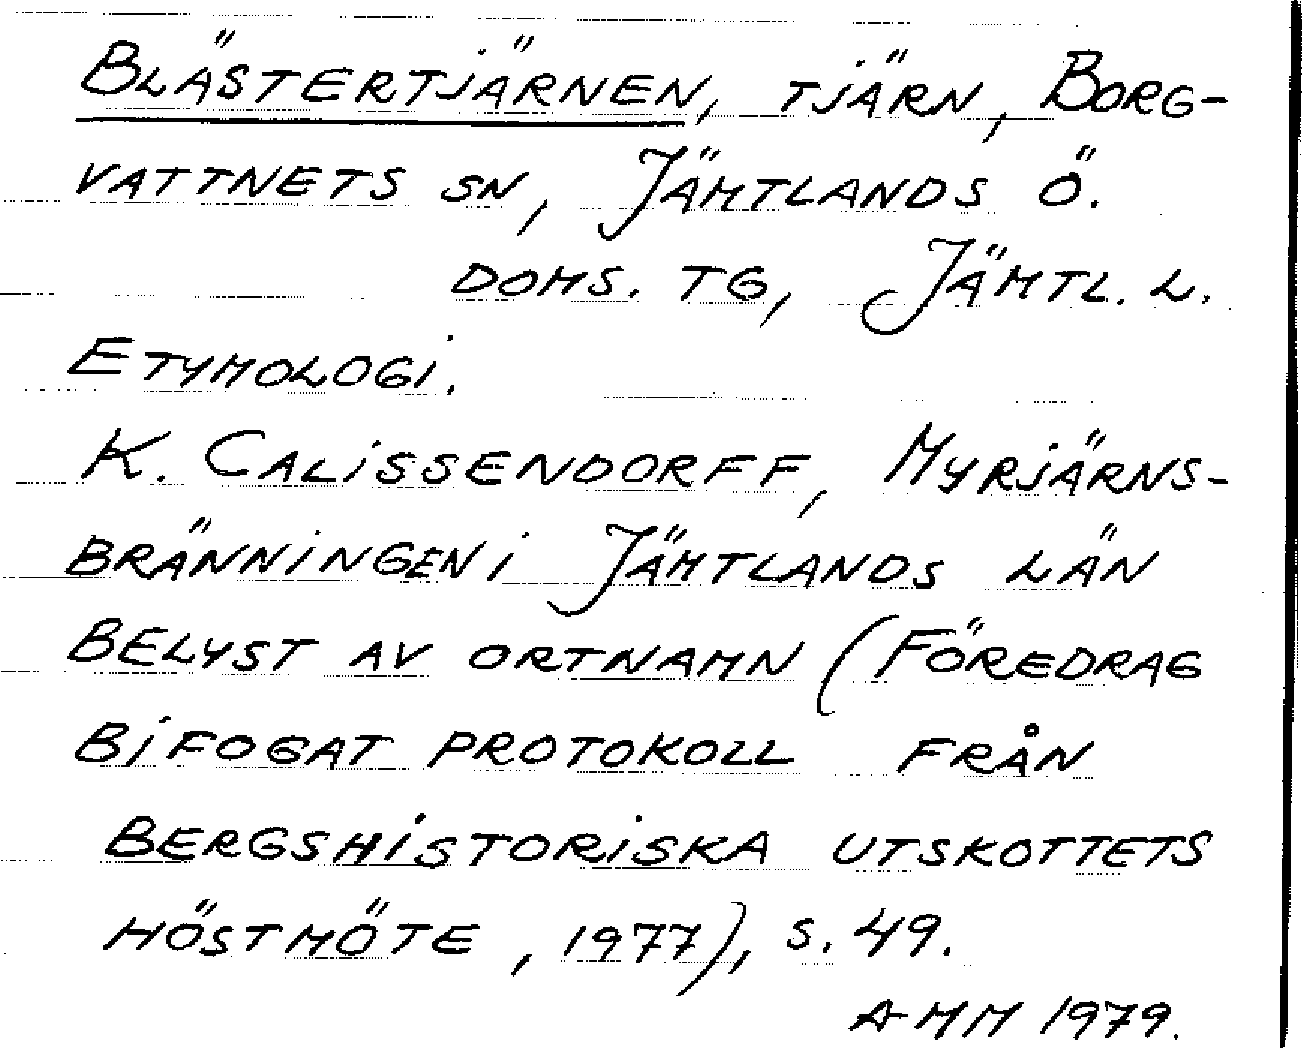 BLÄSTERTJÄRNEN, TJÄRN, BORG-
VATTNETS SN, JÄMTLANDS Ö.
DOMS. TG, JÄMTL. L.
ETYMOLOGI.
K. CALISSENDORFF, MYRJÄRNS-
BRÄNNINGEN I JÄMTLANDS LÄN
BELYST AV ORTNAMN (FÖREDRAG
BIFOGAT PROTOKOLL FRÅN
BERGSHISTORISKA UTSKOTTETS
HÖSTMÖTE, 1977), S. 49.
AMM 1979.